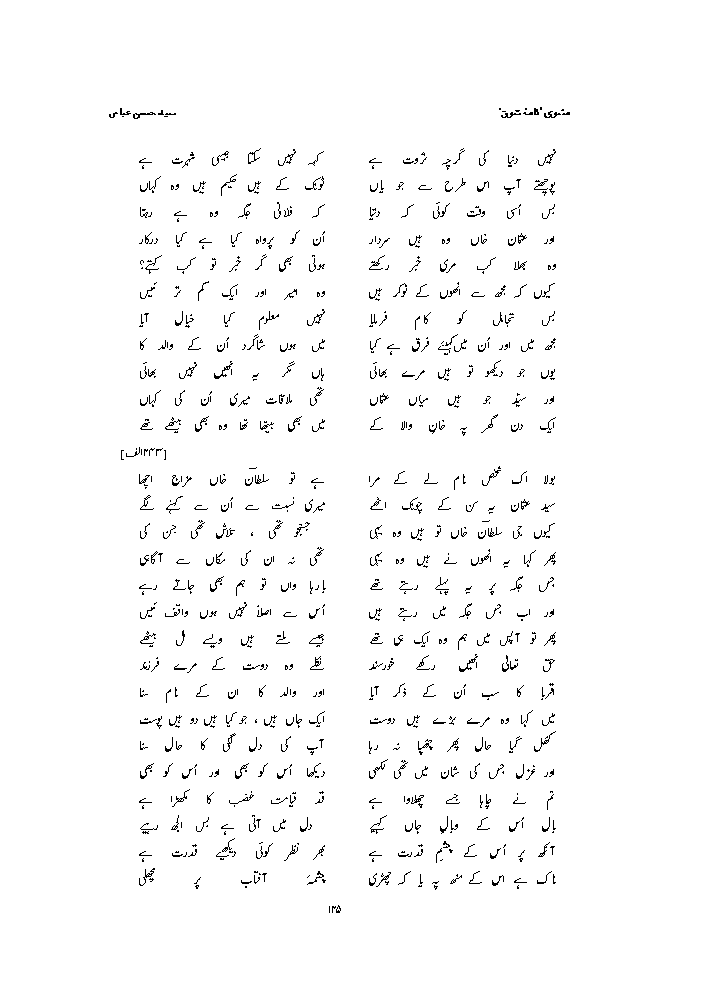 مثنوی "نامۂ شوق" سید حسن عباس
نہیں دنیا کی گرچہ ثروت ہے کہہ نہیں سکتا جیسی شہرت ہے
پوچھتے آپ اس طرح سے جو یاں ٹونک کے ہیں حکیم ہیں وہ کہاں
بس اُسی وقت کوئی کہہ دیتا کہ فلانی جگہ وہ ہے رہتا
اور عثمان خاں وہ ہیں سردار اُن کو پرواہ کیا ہے کیا درکار
وہ بھلا کب مری خبر رکھتے ہوتی بھی گر خبر تو کب کہتے؟
کیوں کہ مجھ سے انھوں کے نوکر ہیں وہ امیر اور ایک کم تر مَیں
بس تجاہل کو کام فرمایا نہیں معلوم کیا خیال آیا
مجھ میں اور اُن میں کہیئے فرق ہے کیا میں ہوں شاگرد اُن کے والد کا
یوں جو دیکھو تو ہیں مرے بھائی ہاں مگر یہ انھیں نہیں بھائی
اور سیّد جو ہیں میاں عثماں تھی ملاقات میری اُن کی کہاں
ایک دن گھر پہ خانِ والا کے میں بھی بیٹھا تھا وہ بھی بیٹھے تھے
[۲۴۳الف]
بولا اک شخص نام لے کے مرا ہے تو سلطانؔ خاں مزاج اچھا
سید عثمان یہ سن کے چونک اٹھے میری نسبت سے اُن سے کہنے لگے
کیوں جی سلطانؔ خاں تو ہیں وہ یہی جستجو تھی ، تلاش تھی جن کی
پھر کہا یہ انھوں نے ہیں وہ یہی تھی نہ ان کی مکاں سے آگاہی
جس جگہ پر یہ پہلے رہتے تھے بارہا واں تو ہم بھی جاتے رہے
اور اب جس جگہ میں رہتے ہیں اُس سے اصلاً نہیں ہوں واقف مَیں
پھر تو آپس میں ہم وہ ایک ہی تھے جیسے ملتے ہیں ویسے مل بیٹھے
حق تعالیٰ انھیں رکھے خورسند نکلے وہ دوست کے مرے فرزند
قربا کا سب اُن کے ذکر آیا اور والد کا ان کے نام سنا
میں کہا وہ مرے بڑے ہیں دوست ایک جاں ہیں ، جو کیا ہیں دو ہیں پوست
کھل گیا حال پھر چھپا نہ رہا آپ کی دل لگی کا حال سنا
اور غزل جس کی شان میں تھی لکھی دیکھا اُس کو بھی اور اُس کو بھی
تم نے چاہا جسے چھلاوا ہے قد قیامت غضب کا مکھڑا ہے
بال اُس کے وبالِ جاں کہیے دل میں آتی ہے بس الجھ رہیے
آنکھ پر اُس کے چشمِ قدرت ہے بھر نظر کوئی دیکھیے قدرت ہے
ناک ہے اس کے منھ پہ یا کہ چھڑی چشمۂ آفتاب پر مچھلی
۱۳۵